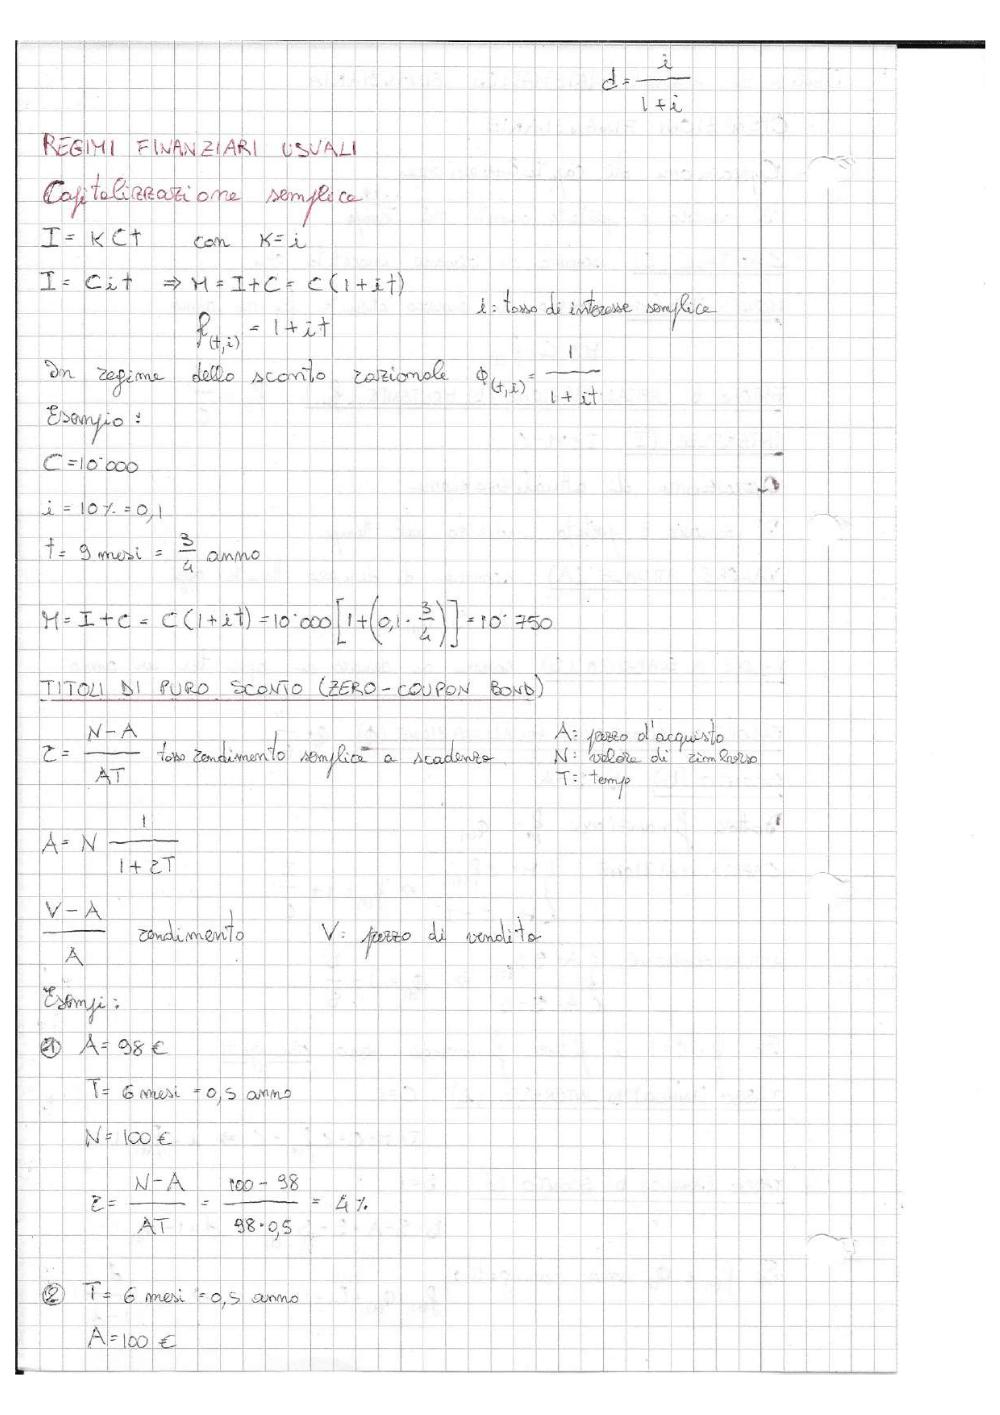 d = i / (1+i)
REGIMI FINANZIARI USUALI
Capitalizzazione semplice
I = KCt con K=i
I = Cit ⇒ M = I+C = C(1+it)
i: tasso di interesse semplice
f(t,i) = 1+it
In regime dello sconto razionale Φ(t,i) = 1 / (1+it)
Esempio:
C=10˙000
i = 10% = 0,1
t = 9 mesi = 3/4 anno
M = I+C = C(1+it) = 10˙000 [1+(0,1 · 3/4)] = 10˙750
TITOLI DI PURO SCONTO (ZERO-COUPON BOND)
r = (N-A) / AT tasso rendimento semplice a scadenza
A: prezzo d'acquisto
N: valore di rimborso
T: tempo
A = N 1 / (1+rT)
(V-A) / A rendimento V: prezzo di vendita
Esempi:
① A = 98 €
T = 6 mesi = 0,5 anno
N = 100 €
r = (N-A) / AT = (100-98) / (98·0,5) = 4%
② T = 6 mesi = 0,5 anno
A = 100 €